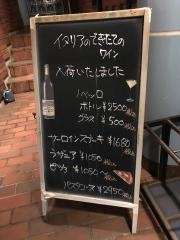 イタリアのできたての
ワイン
入荷いたしました
ノベッロ
ボトル ¥2500
グラス ¥500
サーロインステーキ ¥1680
ラザニア ¥1050
ピッツァ ¥1050〜
パスタコース ¥2950